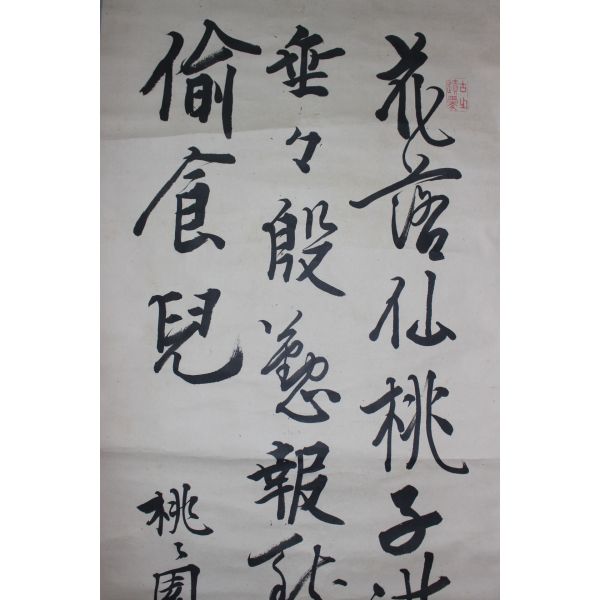 花落仙桃子
垂々殷懃報
偷食兒
桃々園